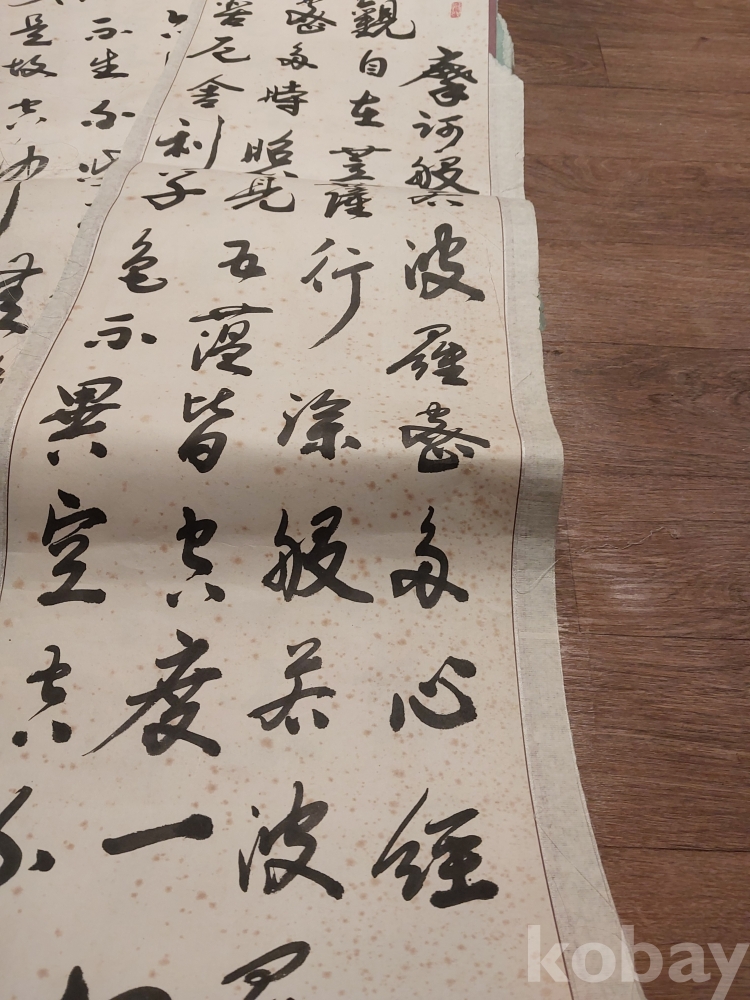 摩訶般波羅蜜多心經
觀自在菩薩行深般若波羅
蜜多時照見五蘊皆空度一
苦厄舍利子色不異空空不
不生不
是故空中無
kobay